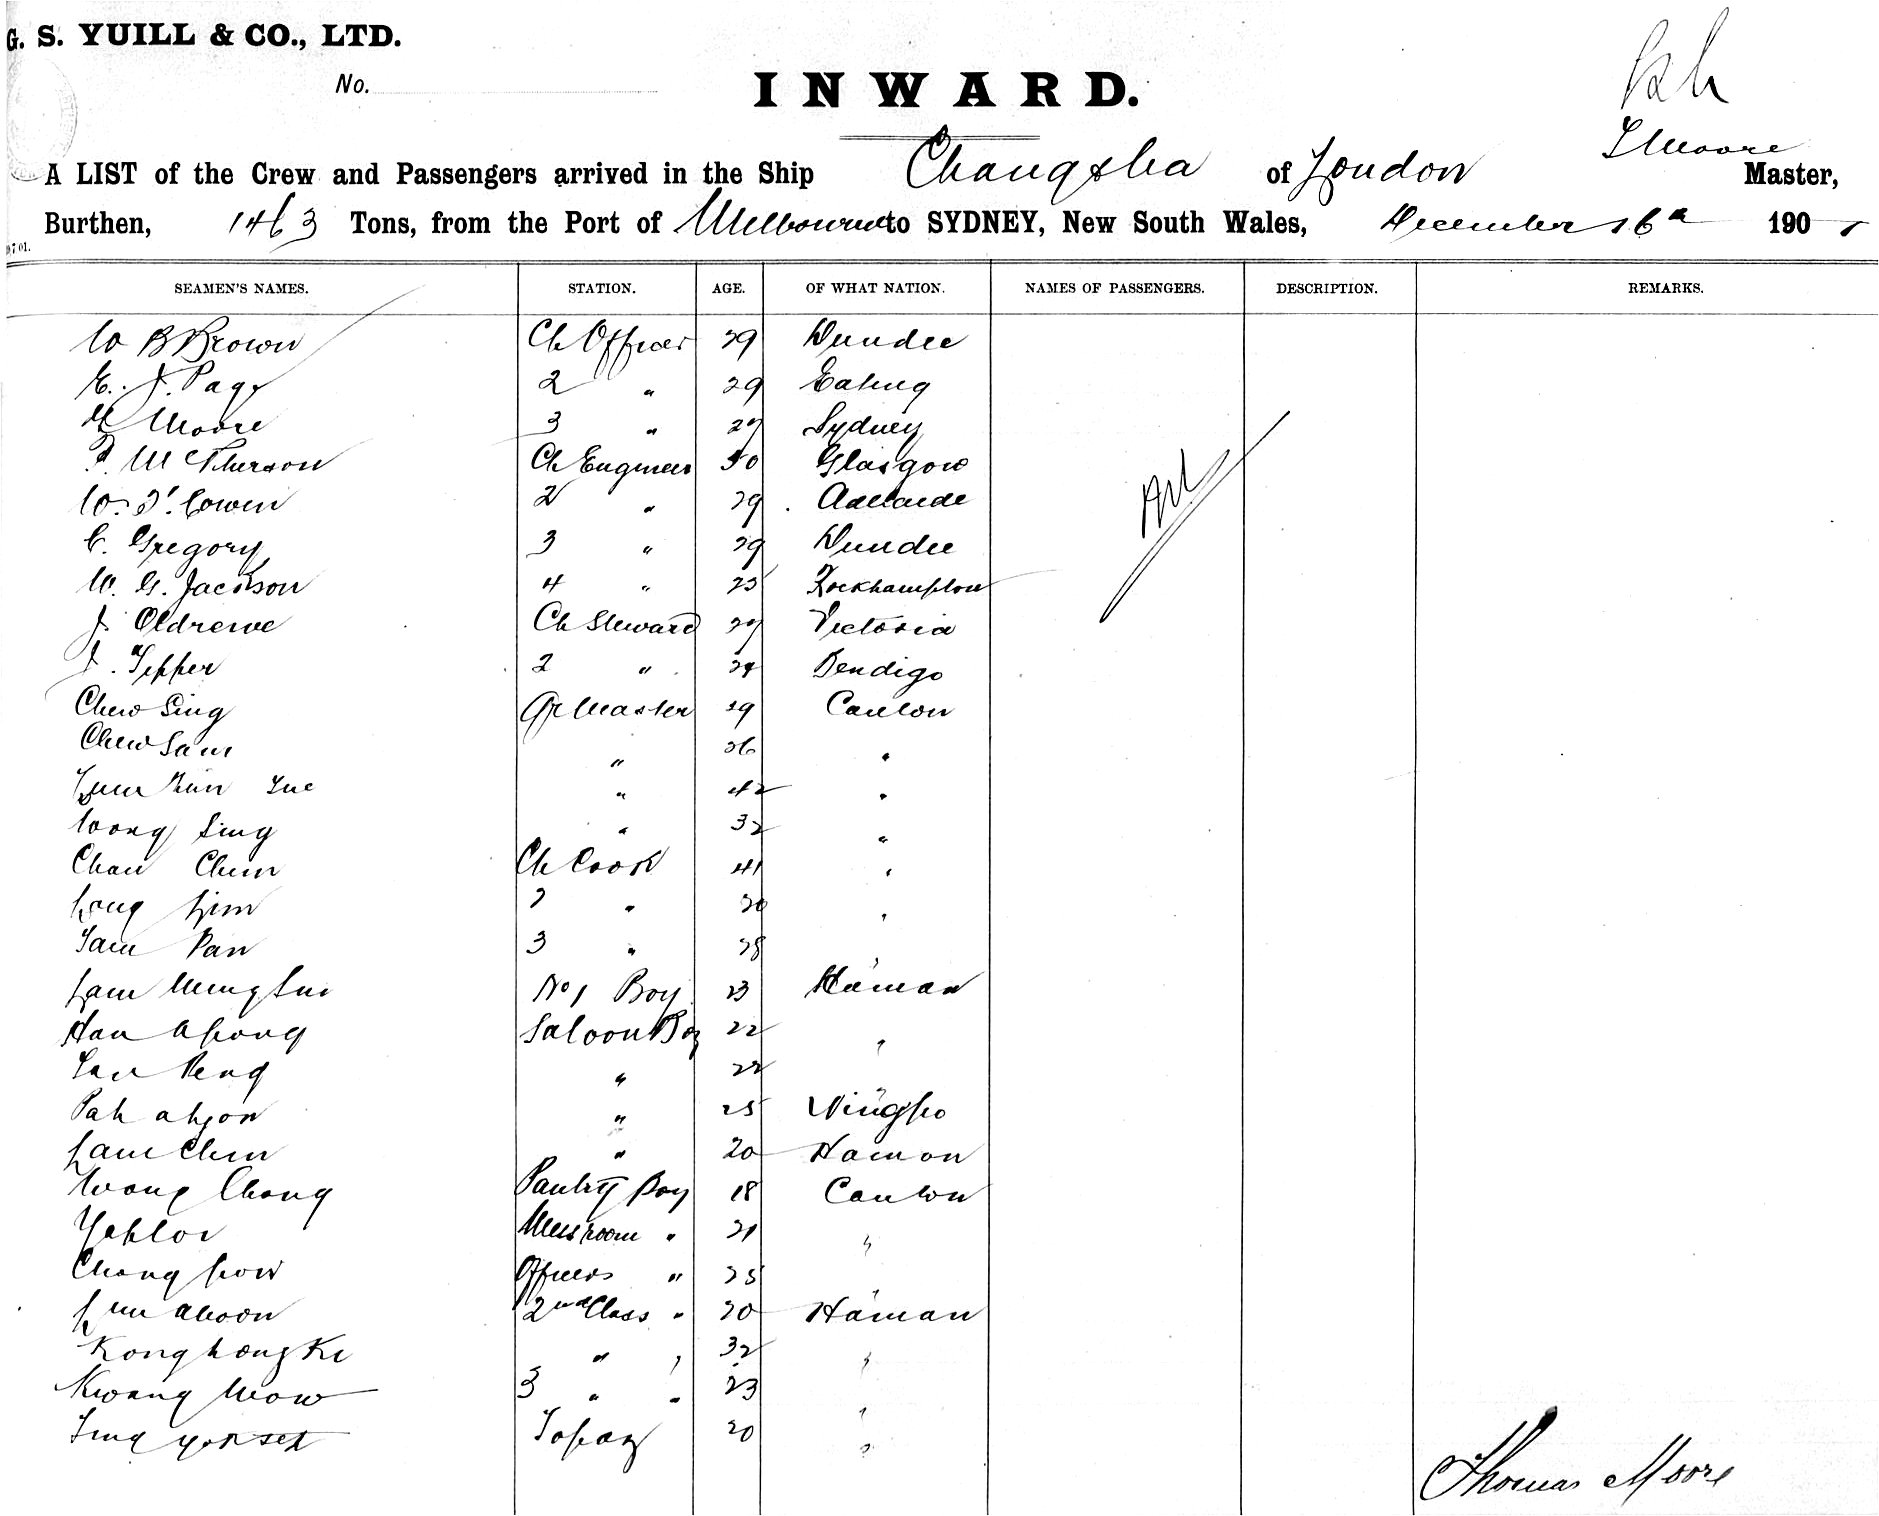 G. S. YUILL & CO., LTD.
No.
INWARD.
T Moore
A LIST of the Crew and Passengers arrived in the Ship Changsha of London Master,
Burthen, 1463 Tons, from the Port of Melbourne to SYDNEY, New South Wales, December 16th 1901
SEAMEN'S NAMES. STATION. AGE. OF WHAT NATION. NAMES OF PASSENGERS. DESCRIPTION. REMARKS.
W B Brown Ch Officer 29 Dundee
E. J. Page 2 " 29 Ealing
H Moore 3 " 27 Sydney
McPherson Ch Engineer 50 Glasgow
W. J. Cowin 2 " 29 Adelaide
C. Gregory 3 " 29 Dundee
W. G. Jackson 4 " 25 Rockhampton
J. Oldrewe Ch Steward 27 Victoria
J. Tepper 2 " 24 Bendigo
Chew Sing Qr Master 29 Canton
Chew Sam " 36 "
Lum Kun " 42 "
Wong Sing " 32 "
Chan Chun Ch Cook 41 "
Long Lim 2 " 20 "
Tam Pan 3 " 28 "
Lam Ming Sui No 1 Boy 23 Hainan
Han Ahong Saloon Boy 22 "
Lau Peng " 22
Pah ahzon " 25 Ningpo
Lam Chun " 20 Hainan
Wong Chong Pantry Boy 18 Canton
Yahloi Messroom " 21 "
Chong how Officers " 25
Lum ahoon 2nd Class " 20 Hainan
Kong hong Ki " " 32 "
Kwang Mow 3 " " 23 "
Ting yok set Topaz 20 "
Thomas Moore